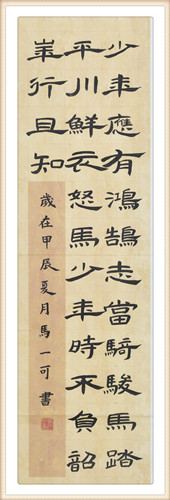 少年應有鴻鵠志當騎駿馬踏
平川鮮衣怒馬少年時不負韶
華行且知
歲在甲辰夏月馬一可書